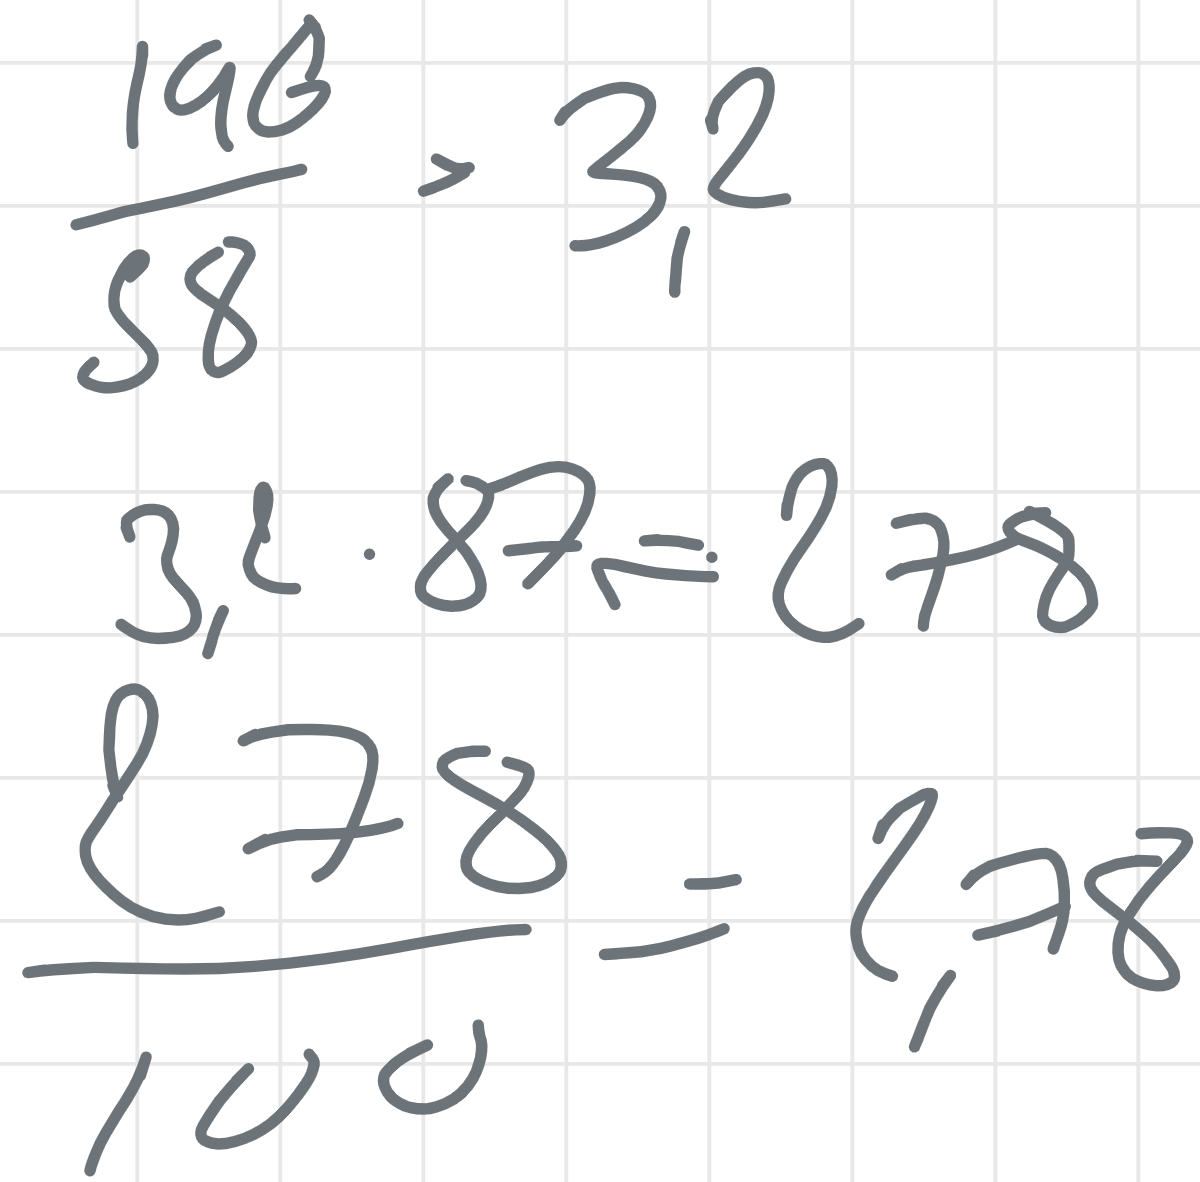 196
58
> 3,2
3,2 · 87 = 278
278
100
= 2,78